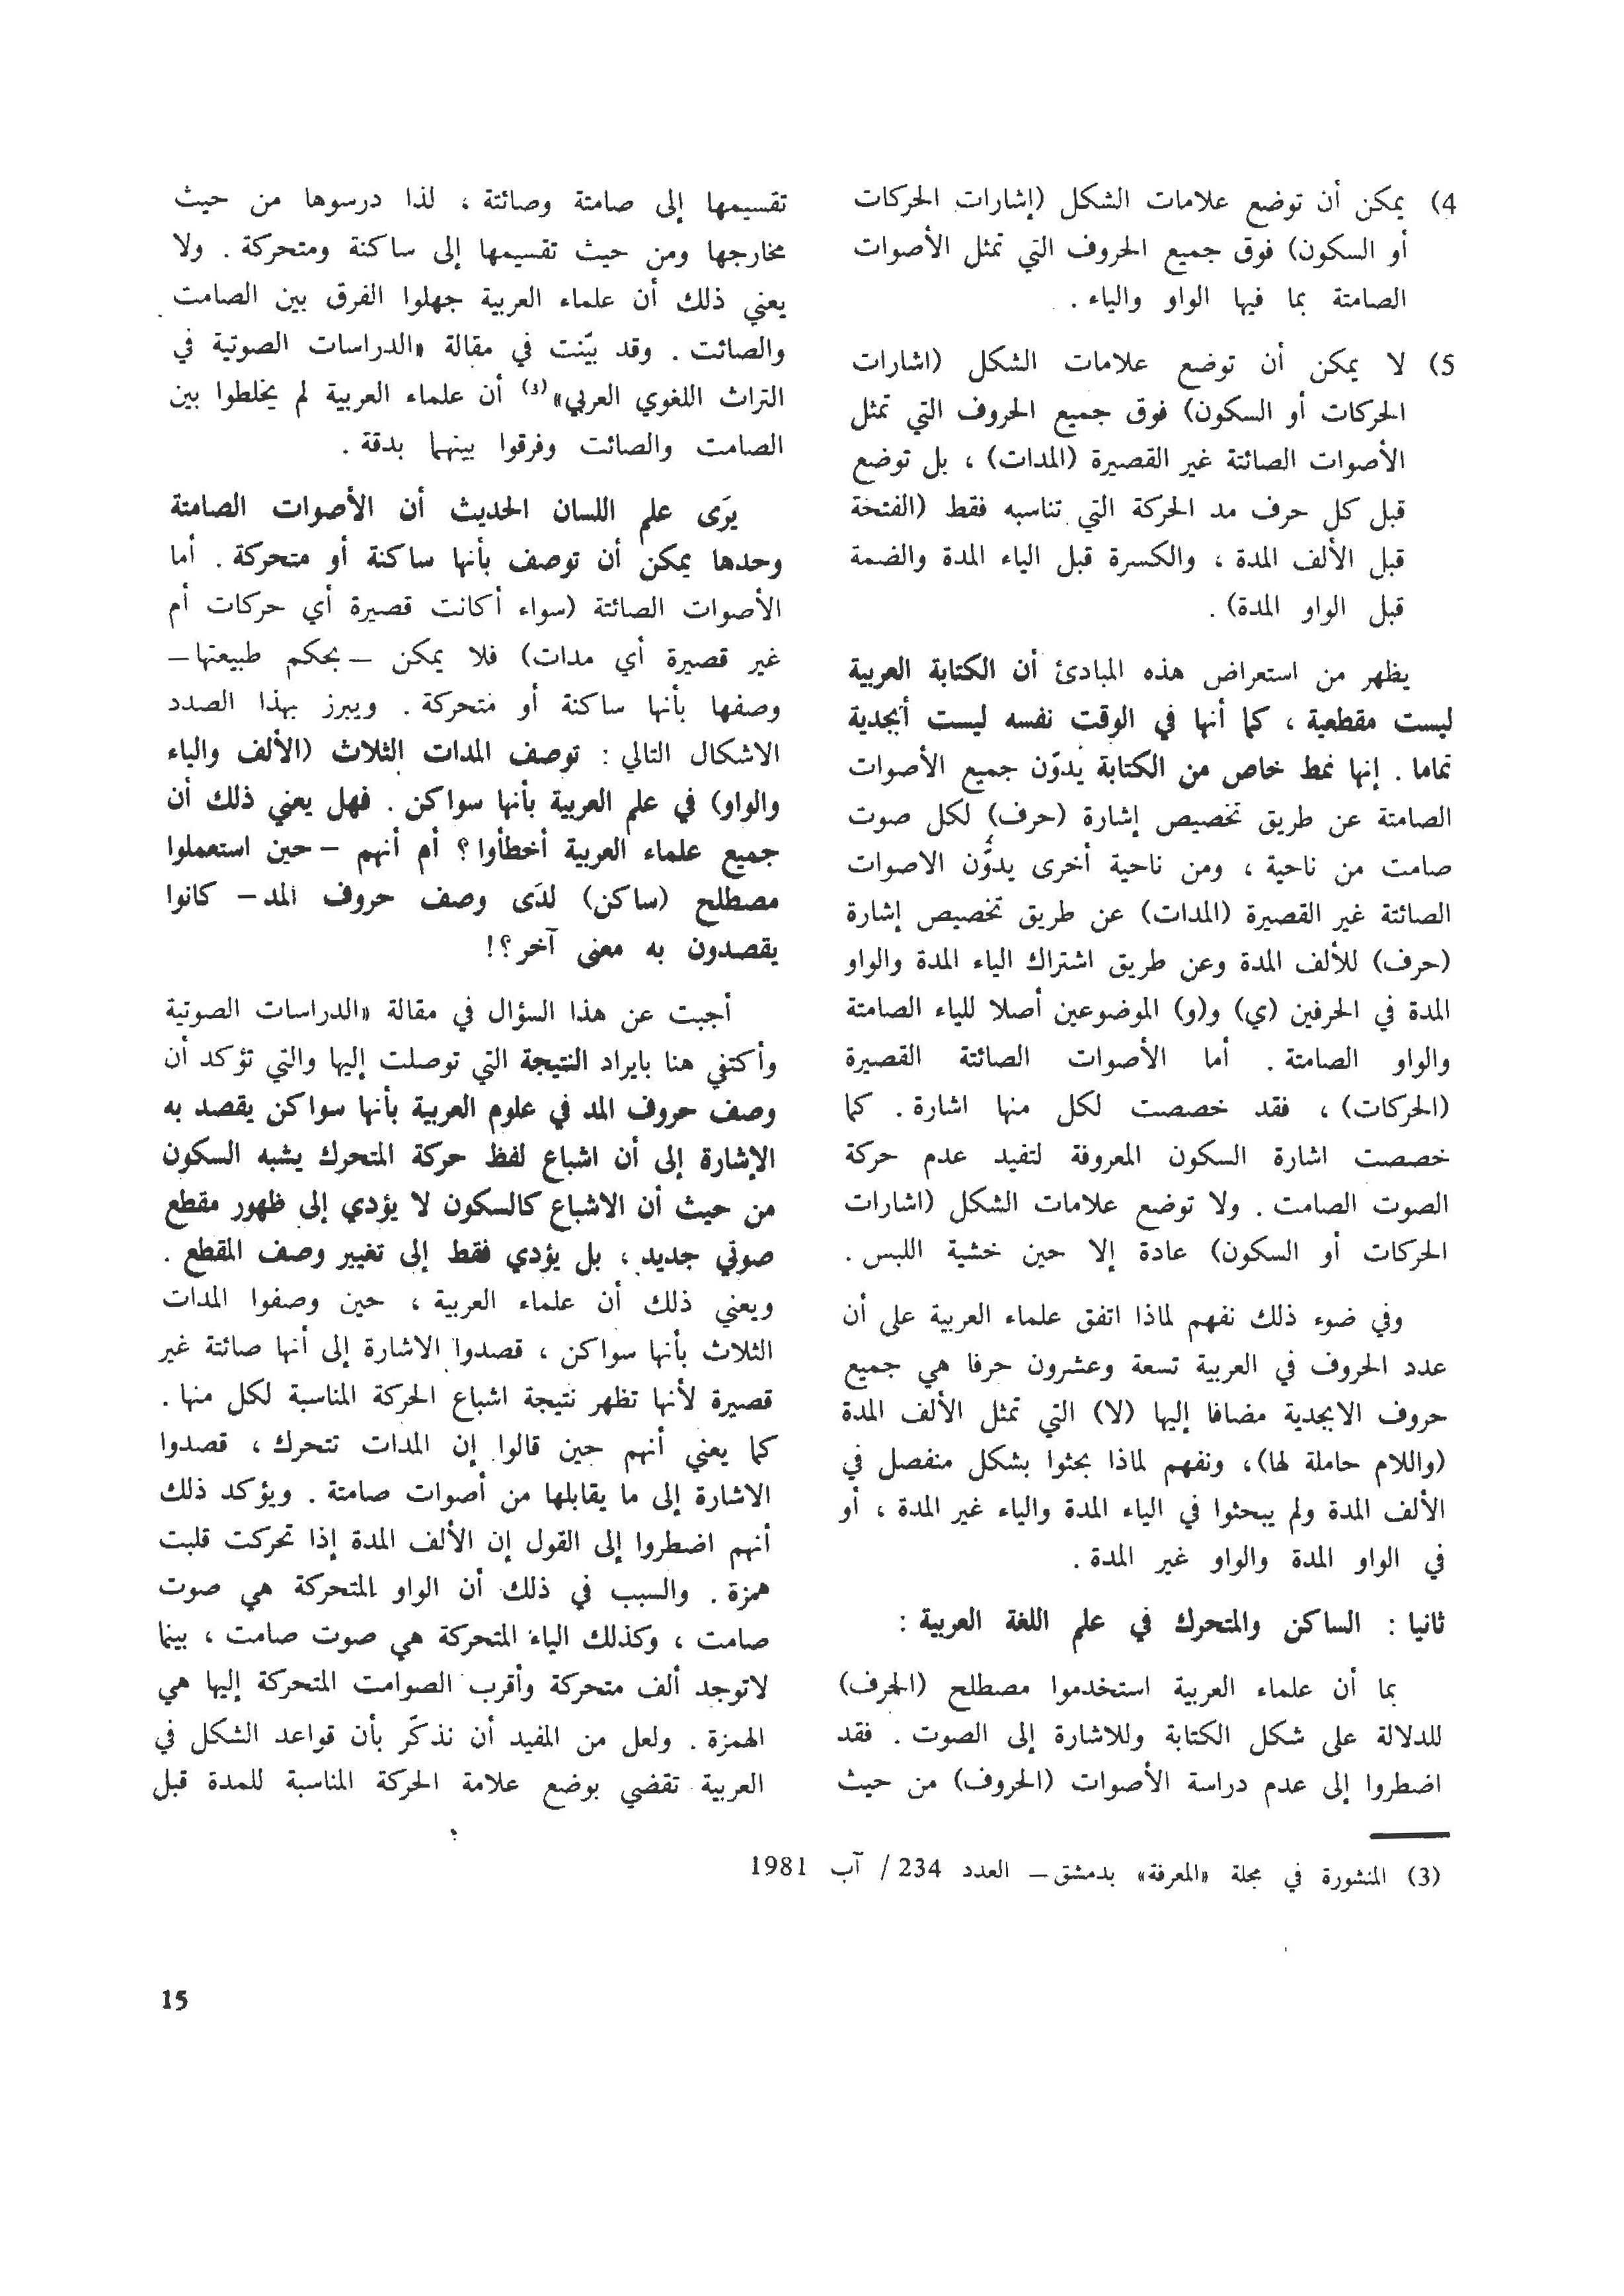 4) يمكن أن توضع علامات الشكل (إشارات الحركات
أو السكون) فوق جميع الحروف التي تمثل الأصوات
الصامتة بما فيها الواو والياء .
5) لا يمكن أن توضع علامات الشكل (اشارات
الحركات أو السكون) فوق جميع الحروف التي تمثل
الأصوات الصائتة غير القصيرة (المدات) ، بل توضع
قبل كل حرف مد الحركة التي تناسبه فقط (الفتحة
قبل الألف المدة ، والكسرة قبل الياء المدة والضمة
قبل الواو المدة) .
يظهر من استعراض هذه المبادئ أن الكتابة العربية
ليست مقطعية ، كما أنها في الوقت نفسه ليست أبجدية
تماما . إنها نمط خاص من الكتابة يدوّن جميع الأصوات
الصامتة عن طريق تخصيص إشارة (حرف) لكل صوت
صامت من ناحية ، ومن ناحية أخرى يدوُّن الاصوات
الصائتة غير القصيرة (المدات) عن طريق تخصيص إشارة
(حرف) للألف المدة وعن طريق اشتراك الياء المدة والواو
المدة في الحرفين (ي) و(و) الموضوعين أصلا للياء الصامتة
والواو الصامتة . أما الأصوات الصائتة القصيرة
(الحركات) ، فقد خصصت لكل منها اشارة . كما
خصصت اشارة السكون المعروفة لتفيد عدم حركة
الصوت الصامت . ولا توضع علامات الشكل (اشارات
الحركات أو السكون) عادة إلا حين خشية اللبس .
وفي ضوء ذلك نفهم لماذا اتفق علماء العربية على أن
عدد الحروف في العربية تسعة وعشرون حرفا هي جميع
حروف الابجدية مضافا إليها (لا) التي تمثل الألف المدة
(واللام حاملة لها)، ونفهم لماذا بحثوا بشكل منفصل في
الألف المدة ولم يبحثوا في الياء المدة والياء غير المدة ، أو
في الواو المدة والواو غير المدة .
ثانيا : الساكن والمتحرك في علم اللغة العربية :
بما أن علماء العربية استخدموا مصطلح (الحرف)
للدلالة على شكل الكتابة وللاشارة إلى الصوت . فقد
اضطروا إلى عدم دراسة الأصوات (الحروف) من حيث
تقسيمها إلى صامتة وصائتة ، لذا درسوها من حيث
مخارجها ومن حيث تقسيمها إلى ساكنة ومتحركة . ولا
يعني ذلك أن علماء العربية جهلوا الفرق بين الصامت
والصائت . وقد بيّنت في مقالة «الدراسات الصوتية في
التراث اللغوي العربي»(3) أن علماء العربية لم يخلطوا بين
الصامت والصائت وفرقوا بينهما بدقة .
يرَى علم اللسان الحديث أن الأصوات الصامتة
وحدها يمكن أن توصف بأنها ساكنة أو متحركة . أما
الأصوات الصائتة (سواء أكانت قصيرة أي حركات أم
غير قصيرة أي مدات) فلا يمكن – بحكم طبيعتها –
وصفها بأنها ساكنة أو متحركة . ويبرز بهذا الصدد
الاشكال التالي : توصف المدات الثلاث (الألف والياء
والواو) في علم العربية بأنها سواكن . فهل يعني ذلك أن
جميع علماء العربية أخطأوا ؟ أم أنهم – حين استعملوا
مصطلح (ساكن) لدَى وصف حروف المد – كانوا
يقصدون به معنى آخر ؟!
أجبت عن هذا السؤال في مقالة «الدراسات الصوتية
وأكتفي هنا بايراد النتيجة التي توصلت إليها والتي تؤكد أن
وصف حروف المد في علوم العربية بأنها سواكن يقصد به
الإشارة إلى أن اشباع لفظ حركة المتحرك يشبه السكون
من حيث أن الاشباع كالسكون لا يؤدي إلى ظهور مقطع
صوتي جديد ، بل يؤدي فقط إلى تغيير وصف المقطع .
ويعني ذلك أن علماء العربية ، حين وصفوا المدات
الثلاث بأنها سواكن ، قصدوا الاشارة إلى أنها صائتة غير
قصيرة لأنها تظهر نتيجة اشباع الحركة المناسبة لكل منها .
كما يعني أنهم حين قالوا إن المدات تتحرك ، قصدوا
الاشارة إلى ما يقابلها من أصوات صامتة . ويؤكد ذلك
أنهم اضطروا إلى القول إن الألف المدة إذا تحركت قلبت
همزة . والسبب في ذلك أن الواو المتحركة هي صوت
صامت ، وكذلك الياء المتحركة هي صوت صامت ، بينما
لاتوجد ألف متحركة وأقرب الصوامت المتحركة إليها هي
الهمزة . ولعل من المفيد أن نذكّر بأن قواعد الشكل في
العربية تقضي بوضع علامة الحركة المناسبة للمدة قبل
(3) المنشورة في مجلة «المعرفة» بدمشق – العدد 234 / آب 1981
15